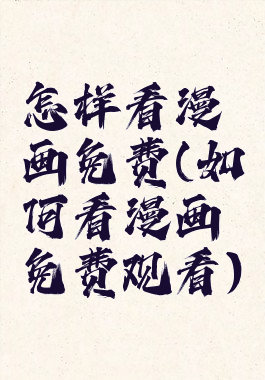 怎样看漫
画免费(如
何看漫画
免费观看)